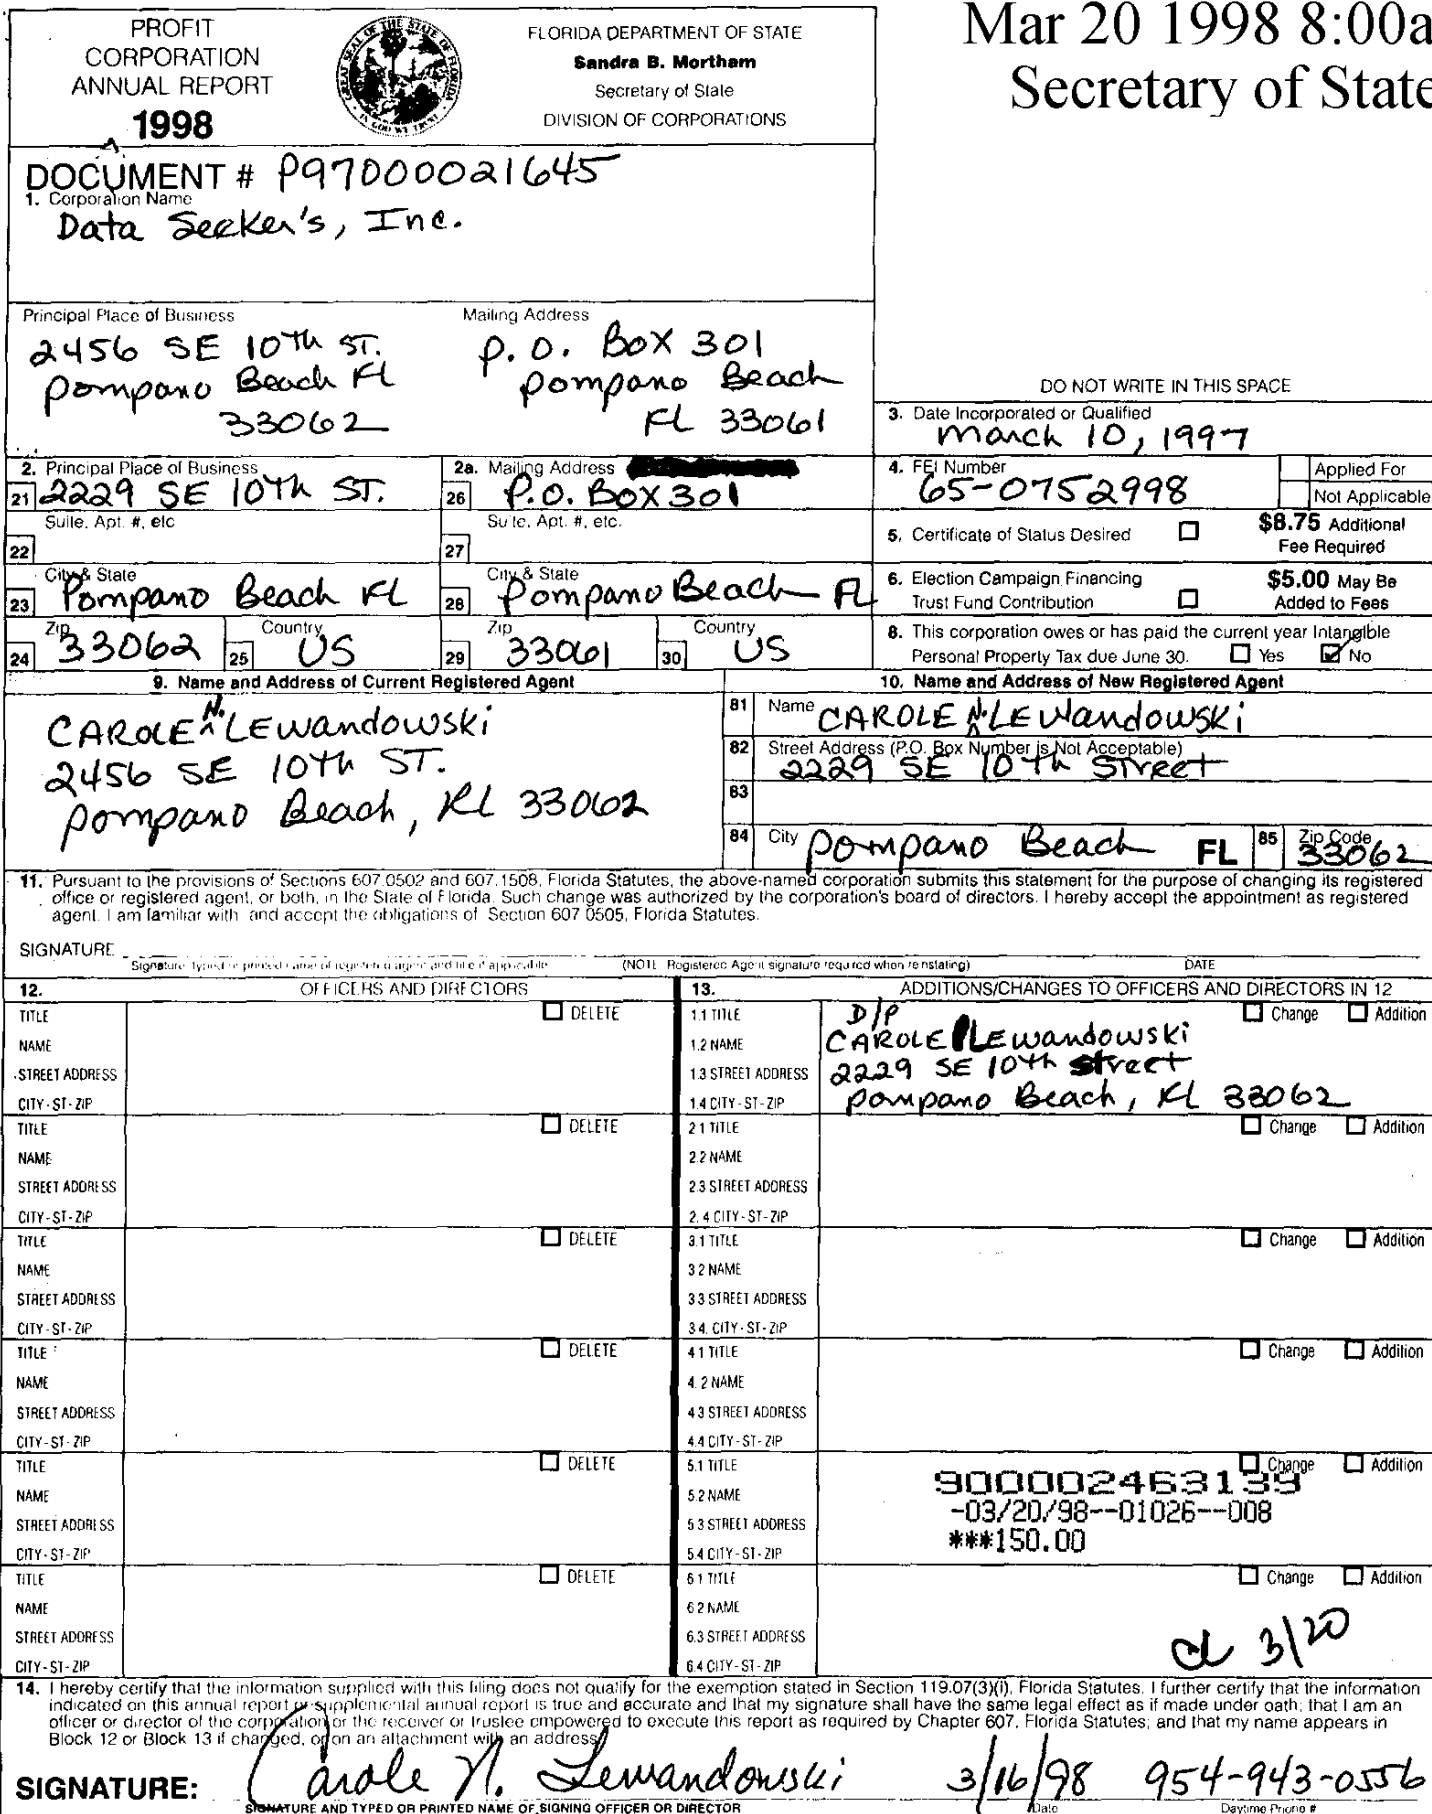 PROFIT
CORPORATION
ANNUAL REPORT
1998
FLORIDA DEPARTMENT OF STATE
Sandra B. Mortham
Secretary of State
DIVISION OF CORPORATIONS
Mar 20 1998 8:00a
Secretary of State
DOCUMENT # P97000021645
1. Corporation Name
Data Seeker's, Inc.
Principal Place of Business
2456 SE 10th ST.
Pompano Beach FL
33062
Mailing Address
P.O. Box 301
Pompano Beach
FL 33061
DO NOT WRITE IN THIS SPACE
3. Date Incorporated or Qualified
March 10, 1997
2. Principal Place of Business
21 2229 SE 10th ST.
2a. Mailing Address
26 P.O. Box 301
4. FEI Number
65-0752998
Applied For
Not Applicable
Suite, Apt. #, etc
22
Suite, Apt. #, etc.
27
5. Certificate of Status Desired
$8.75 Additional
Fee Required
City & State
23 Pompano Beach FL
City & State
28 Pompano Beach FL
6. Election Campaign Financing
Trust Fund Contribution
$5.00 May Be
Added to Fees
Zip
24 33062
Country
25 US
Zip
29 33061
Country
30 US
8. This corporation owes or has paid the current year Intangible
Personal Property Tax due June 30. Yes No
9. Name and Address of Current Registered Agent
CAROLE N. LEWandowski
2456 SE 10th ST.
Pompano Beach, FL 33062
10. Name and Address of New Registered Agent
81 Name CAROLE N. LEWandowski
82 Street Address (P.O. Box Number is Not Acceptable)
2229 SE 10th Street
83
84 City Pompano Beach FL 85 Zip Code 33062
11. Pursuant to the provisions of Sections 607.0502 and 607.1508, Florida Statutes, the above-named corporation submits this statement for the purpose of changing its registered
office or registered agent, or both, in the State of Florida. Such change was authorized by the corporation's board of directors. I hereby accept the appointment as registered
agent. I am familiar with and accept the obligations of Section 607 0505, Florida Statutes.
SIGNATURE
Signature, typed or printed name of registered agent and title if applicable (NOTE Registered Agent signature required when reinstating) DATE
12. OFFICERS AND DIRECTORS
13. ADDITIONS/CHANGES TO OFFICERS AND DIRECTORS IN 12
TITLE DELETE
NAME
STREET ADDRESS
CITY-ST-ZIP
1.1 TITLE D/P Change Addition
1.2 NAME CAROLE LEWandowski
1.3 STREET ADDRESS 2229 SE 10th Street
1.4 CITY-ST-ZIP Pompano Beach, FL 33062
TITLE DELETE
NAME
STREET ADDRESS
CITY-ST-ZIP
2 1 TITLE Change Addition
2.2 NAME
2.3 STREET ADDRESS
2.4 CITY-ST-ZIP
TITLE DELETE
NAME
STREET ADDRESS
CITY-ST-ZIP
3.1 TITLE Change Addition
3 2 NAME
3 3 STREET ADDRESS
3 4. CITY-ST-ZIP
TITLE DELETE
NAME
STREET ADDRESS
CITY-ST-ZIP
4 1 TITLE Change Addition
4.2 NAME
4 3 STREET ADDRESS
4.4 CITY-ST-ZIP
TITLE DELETE
NAME
STREET ADDRESS
CITY-ST-ZIP
5.1 TITLE Change Addition
5.2 NAME
5 3 STREET ADDRESS
5.4 CITY-ST-ZIP
900002463139
-03/20/98--01026--008
***150.00
TITLE DELETE
NAME
STREET ADDRESS
CITY-ST-ZIP
6 1 TITLE Change Addition
6 2 NAME
6.3 STREET ADDRESS
6.4 CITY-ST-ZIP
3/20
14. I hereby certify that the information supplied with this filing does not qualify for the exemption stated in Section 119.07(3)(i), Florida Statutes. I further certify that the information
indicated on this annual report or supplemental annual report is true and accurate and that my signature shall have the same legal effect as if made under oath; that I am an
officer or director of the corporation or the receiver or trustee empowered to execute this report as required by Chapter 607, Florida Statutes; and that my name appears in
Block 12 or Block 13 if changed, or on an attachment with an address.
SIGNATURE: Carole N. Lewandowski 3/16/98 954-943-0556
SIGNATURE AND TYPED OR PRINTED NAME OF SIGNING OFFICER OR DIRECTOR Date Daytime Phone #